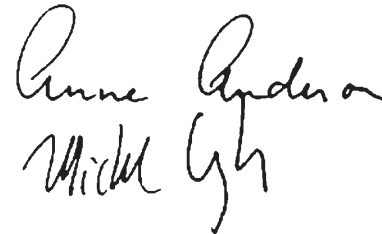 Anne Anderson
Michel